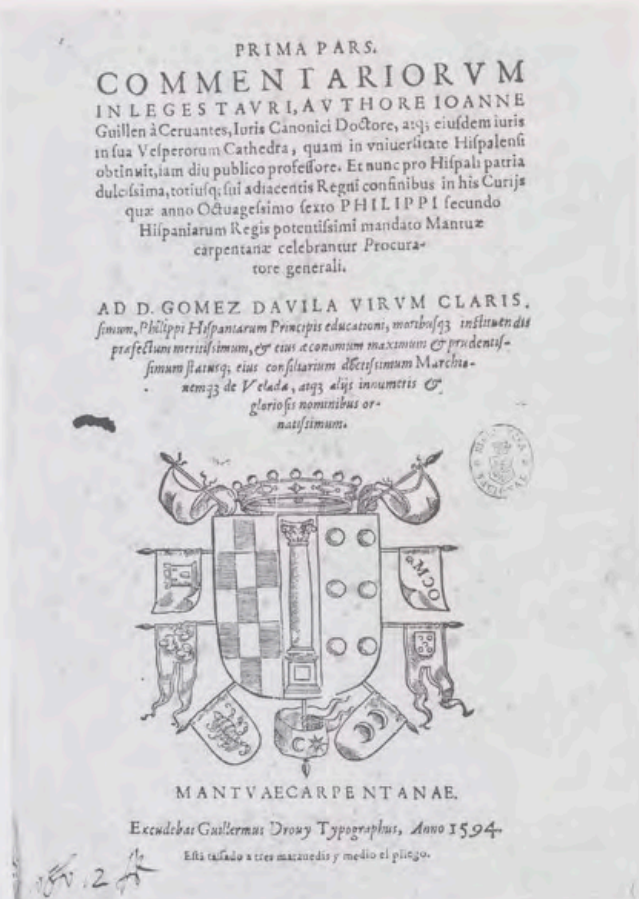 PRIMA PARS.
COMMENTARIORVM
IN LEGES TAVRI, AVTHORE IOANNE
Guillen à Ceruantes, Iuris Canonici Doctore, atq; eiusdem iuris
in sua Vesperorum Cathedra, quam in vniuersitate Hispalensi
obtinuit, iam diu publico professore. Et nunc pro Hispali patria
dulcissima, totiusq; sui adiacentis Regni confinibus in his Curijs
quæ anno Octuagessimo sexto PHILIPPI secundo
Hispaniarum Regis potentissimi mandato Mantuæ
carpentanæ celebrantur Procura-
tore generali.
AD D. GOMEZ DAVILA VIRVM CLARIS.
simum, Philippi Hispaniarum Principis educationi, moribusq3 instituendis
præfectum meritissimum, & eius œconomum maximum & prudentis-
simum statusq; eius consiliarium doctissimum Marchio-
nemq3 de Velada, atq3 alijs innumeris &
gloriosis nominibus or-
natissimum.
NACIONAL
MANTVAE CARPENTANAE.
Excudebat Guillermus Drouy Typographus, Anno 1594.
Està tassado a tres marauedis y medio el pliego.